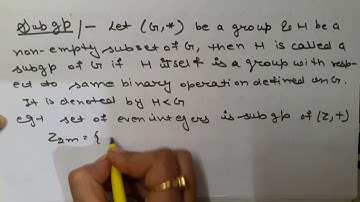 Subgp/- Let (G,*) be a group & H be a
non-empty subset of G, then H is called a
subgp of G if H itself is a group with resp-
ect to same binary operation defined on G.
It is denoted by H<G
eg:- set of even integers is subgp of (Z,+)
Z2m = {